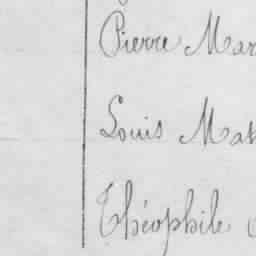 Pierre Mar
Louis Mat
Théophile